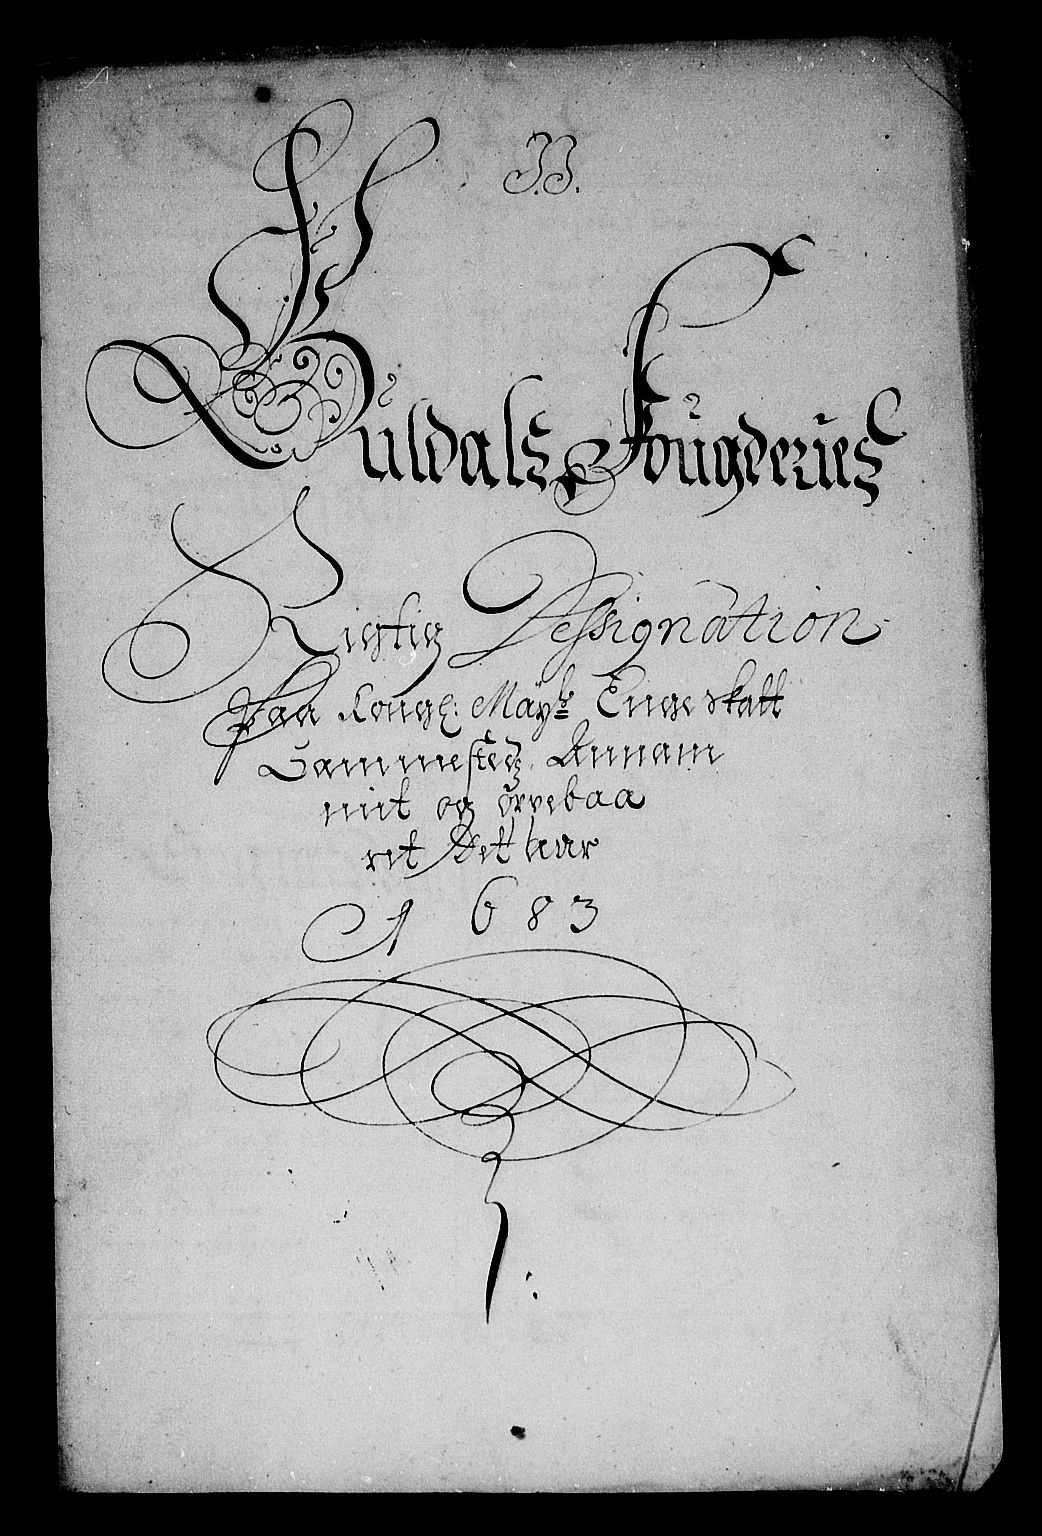 JJ.
Guldals Fougderies
Rigtig Dessignation
Paa Kongl: Mayts Eiige skatt
Sammested, Annam
mit og örrebaa
ret Det aar
1683